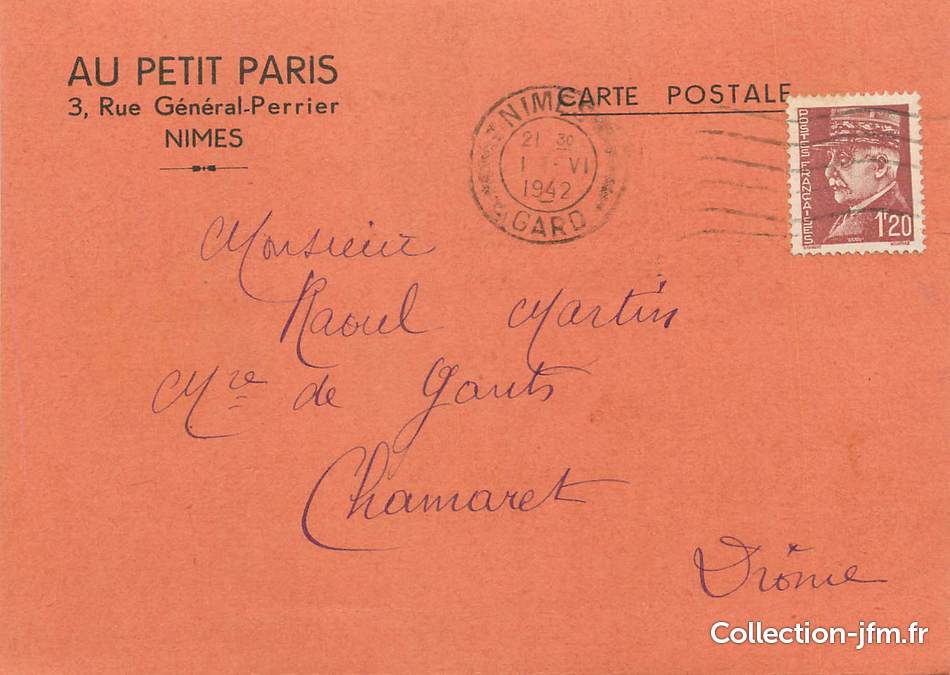 AU PETIT PARIS
3, Rue Général-Perrier
NIMES
CARTE POSTALE
NIMES
21 30
1 - VI
1942
GARD
POSTES FRANÇAISES
1F20
Monsieur
Raoul Martin
Mre de Gants
Chamaret
Drôme
Collection-jfm.fr